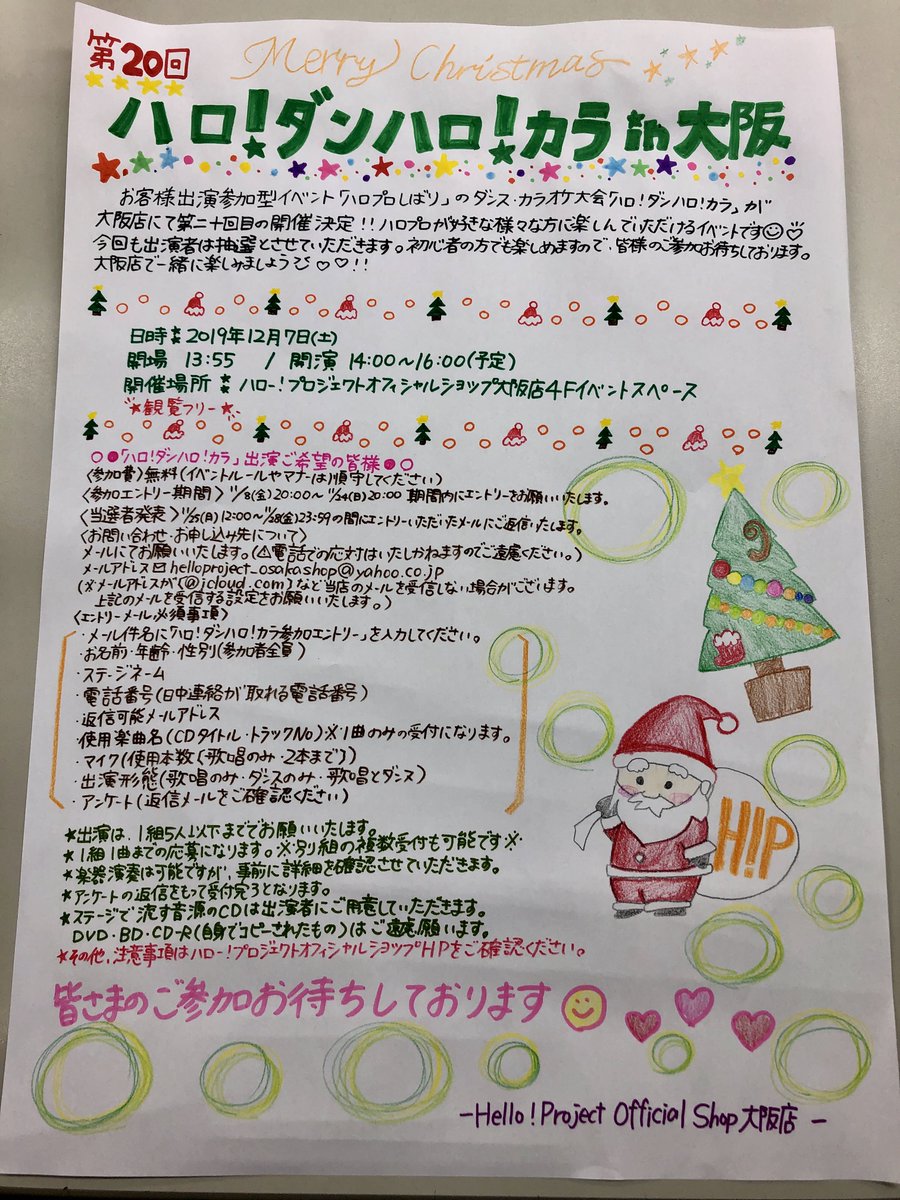 第20回
Merry Christmas
ハロ!ダンハロ!カラin大阪
お客様出演参加型イベント「ハロプロしばり」のダンス・カラオケ大会「ハロ!ダンハロ!カラ」が
大阪店にて第二十回目の開催決定!!ハロプロが好きな様々な方に楽しんでいただけるイベントです
今回も出演者は抽選とさせていただきます。初心者の方でも楽しめますので、皆様のご参加お待ちしております。
大阪店で一緒に楽しみましょう♡♡!!
日時★2019年12月7日(土)
開場 13:55 / 開演 14:00～16:00(予定)
開催場所★ハロー!プロジェクトオフィシャルショップ大阪店4Fイベントスペース
★観覧フリー★
○●「ハロ!ダンハロ!カラ」出演ご希望の皆様●○
〈参加費〉無料(イベントルールやマナーは順守してください)
〈参加エントリー期間〉11/8(金)20:00～11/24(日)20:00 期間内にエントリーをお願いいたします。
〈当選者発表〉11/25(月)12:00～11/28(金)23:59の間にエントリーいただいたメールにご返信いたします。
〈お問い合わせ・お申し込み先について〉
メールにてお願いいたします。(⚠電話での応対はいたしかねますのでご遠慮ください。)
メールアドレス✉helloproject_osakashop@yahoo.co.jp
(※メールアドレスが(@icloud.com)など当店のメールを受信しない場合がございます。
上記のメールを受信する設定をお願いいたします。)
〈エントリーメール必須事項〉
・メール件名に「ハロ!ダンハロ!カラ参加エントリー」を入力してください。
・お名前・年齢・性別(参加者全員)
・ステージネーム
・電話番号(日中連絡が取れる電話番号)
・返信可能メールアドレス
・使用楽曲名(CDタイトル・トラックNo)※1曲のみの受付になります。
・マイク(使用本数(歌唱のみ・2本まで))
・出演形態(歌唱のみ・ダンスのみ・歌唱とダンス)
・アンケート(返信メールをご確認ください)
H!P
★出演は、1組5人以下まででお願いいたします。
★1組1曲までの応募になります。※別組の複数受付も可能です※
★楽器演奏は可能ですが、事前に詳細を確認させていただきます。
★アンケートの返信をもって受付完了となります。
★ステージで流す音源のCDは出演者にご用意していただきます。
DVD・BD・CD-R(自身でコピーされたもの)はご遠慮願います。
★その他、注意事項はハロー!プロジェクトオフィシャルショップHPをご確認ください。
皆さまのご参加お待ちしております
-Hello!Project Official Shop 大阪店 -